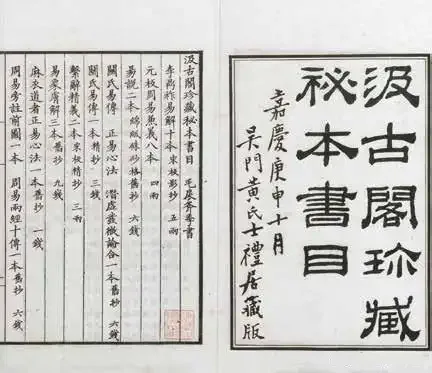 汲古閣珍藏
祕本書目
嘉慶庚申十月
吴門黄氏士禮居藏版
汲古閣珍藏秘本書目 毛扆斧季書
李鼎祚易解十本宋板影抄 五兩
元板周易兼義八本 四兩
易説二本綿紙硃砂格舊抄 六錢
關氏易傳 正易心法 潛虚發微論合一本舊抄 六錢
關氏易傳一本精抄 三錢
繫辭精義二本宋板精抄 三兩
易象膚解三本舊抄 九錢
麻衣道者正易心法一本舊抄 一錢
周易旁註前圖一本 周易兩經十傳一本舊抄 六錢